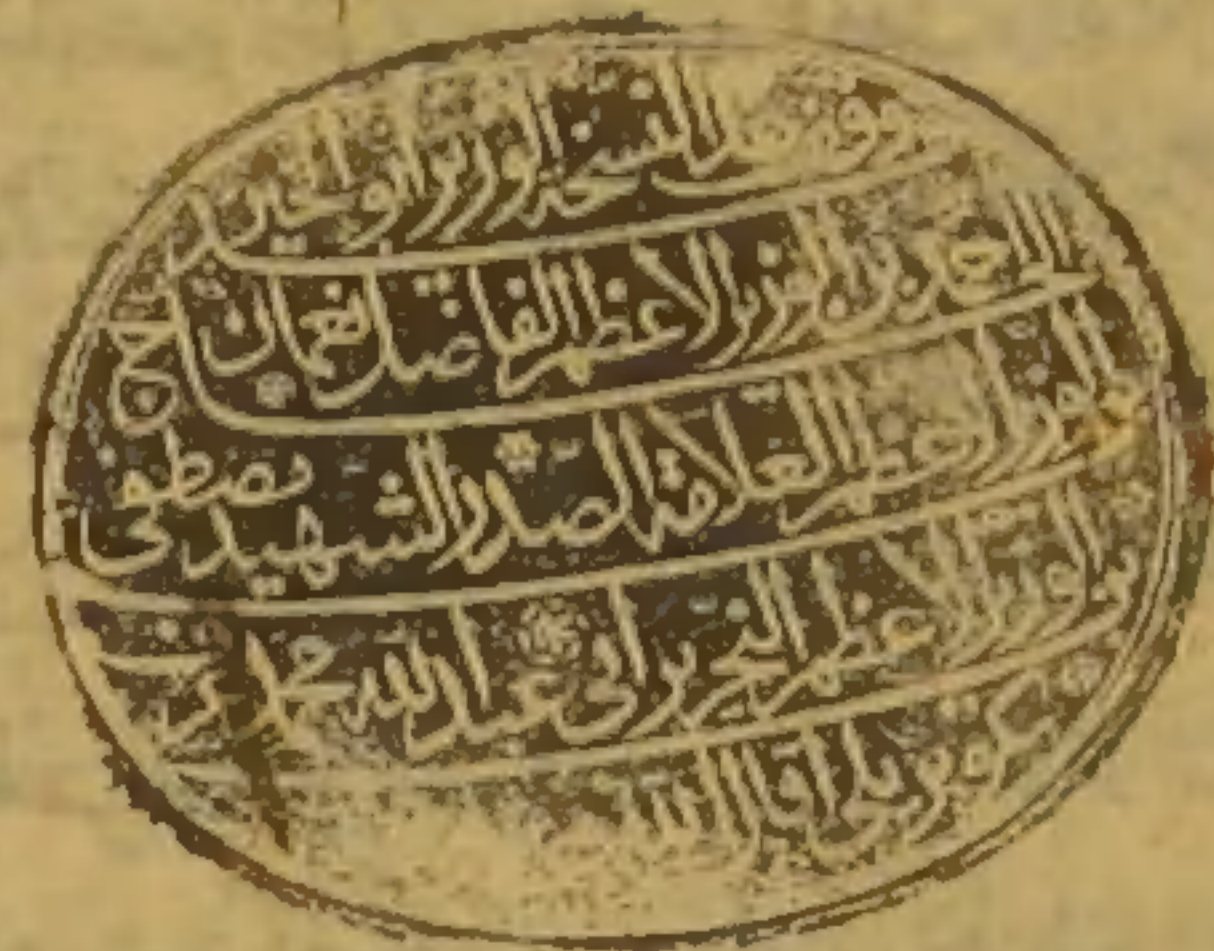 وقف هذا النسخة الوزير ابو الخير احمد
الحاج بن الوزير الاعظم الفاضل نعمان
بن الوزير الاعظم العلامة الصدر الشهيد مصطفى
بن الوزير الاعظم النحرير ابي عبد الله محمد
كوپريلي اقال الله